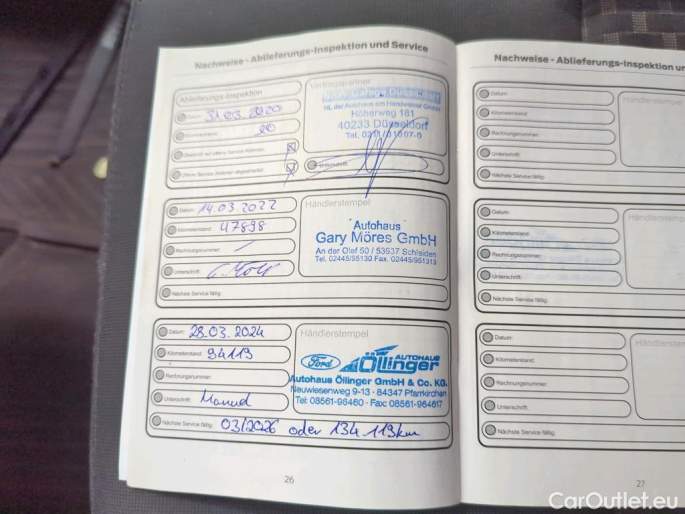 Nachweise - Ablieferungs-Inspektion und Service
Ablieferungs-Inspektion
Datum: 31.03.2020
Kilometerstand: 20
Vertragspartner
NL der Autohaus am Handweiser GmbH
Höherweg 181
40233 Düsseldorf
Datum: 14.03.2022
Kilometerstand: 47898
Rechnungsnummer: /
Unterschrift:
Nächste Service fällig:
Händlerstempel
Autohaus
Gary Möres GmbH
An der Olef 50 / 53937 Schleiden
Tel. 02445/95130 Fax. 02445/951313
Datum: 28.03.2024
Kilometerstand: 94119
Rechnungsnummer:
Unterschrift:
Nächste Service fällig: 03/2026 oder 134 119km
Händlerstempel
Ford AUTOHAUS
Öllinger
Autohaus Öllinger GmbH & Co. KG.
Neuwiesenweg 9-13 · 84347 Pfarrkirchen
Tel: 08561-96460 · Fax: 08561-964617
26
Nachweise - Ablieferungs-Inspektion u
Datum:
Kilometerstand:
Rechnungsnummer:
Unterschrift:
Nächste Service fällig:
Händlerstempel
Datum:
Kilometerstand:
Rechnungsnummer:
Unterschrift:
Nächste Service fällig:
Händlerstempel
Datum:
Kilometerstand:
Rechnungsnummer:
Unterschrift:
Nächste Service fällig:
Händlerstempel
27
CarOutlet.eu